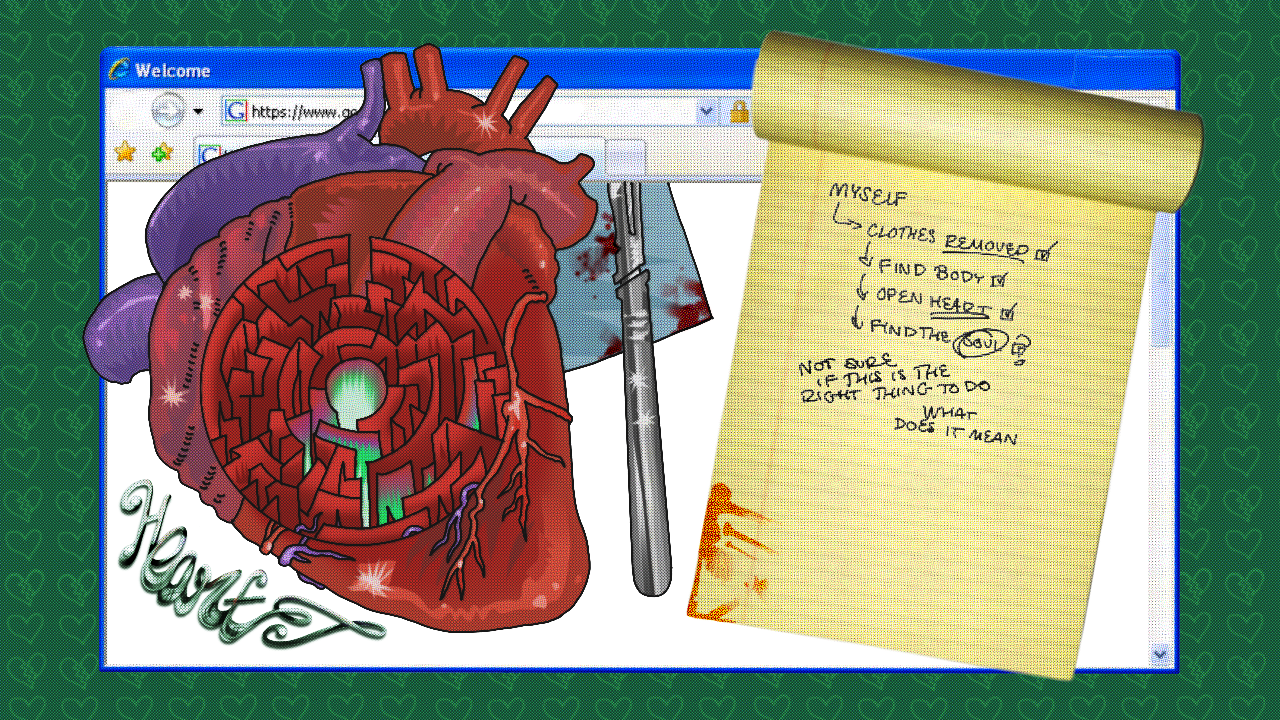 Welcome
https://www.go
MYSELF
CLOTHES REMOVED
FIND BODY
OPEN HEART
FIND THE SOUL ?
NOT SURE
IF THIS IS THE
RIGHT THING TO DO
WHAT
DOES IT MEAN
Heart